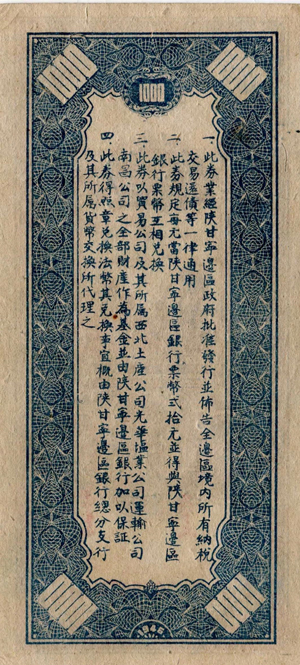 1000
一 此券業經陝甘寧邊區政府批准發行並佈告全邊區境內所有納稅
交易還債等一律通用
二 此券規定每元當陝甘寧邊區銀行票幣弍拾元並得與陝甘寧邊區
銀行票幣互相兑換
三 此券以貿易公司及其所屬西北土產公司光華塩業公司運輸公司
南昌公司之全部財產作為基金並由陝甘寧邊區銀行加以保証
四 此券得照章兑換法幣其兑換事宜概由陝甘寧邊區銀行總分支行
及其所屬貨幣交換所代理之